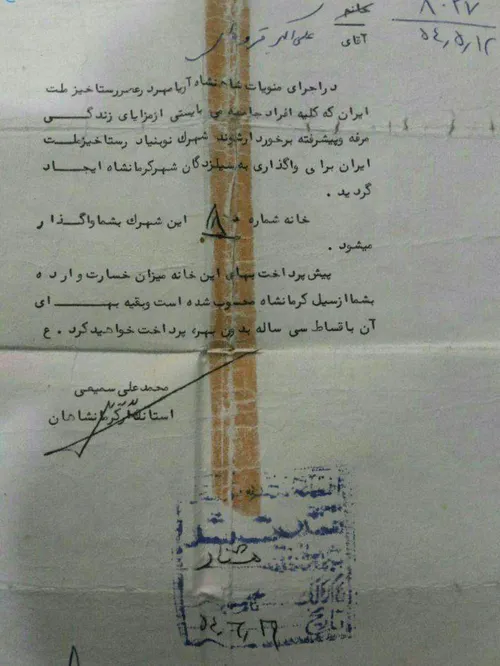 خانم ۸۰۲۷
آقای علی اکبر ۵۴٫۵٫۱۲
در اجرای منویات شاهنشاه آریامهر درعصر رستاخیز ملت
ایران که کلیه افراد جامعه می بایستی ازمزایای زندگی
مرفه وپیشرفته برخوردارشوند شهرک نوبنیاد رستاخیزملت
ایران برای واگذاری به سیلزدگان شهرکرمانشاه ایجاد
گردید .
خانه شماره این شهرک بشماواگذار
میشود .
پیش پرداخت بهای این خانه میزان خسارت وارده
بشماازسیل کرمانشاه محسوب شده است وبقیه بهای
آن باقساط سی ساله بدون بهره پرداخت خواهیدکرد . ع
محمدعلی سمیعی
استاندارکرمانشاهان
تاریخ